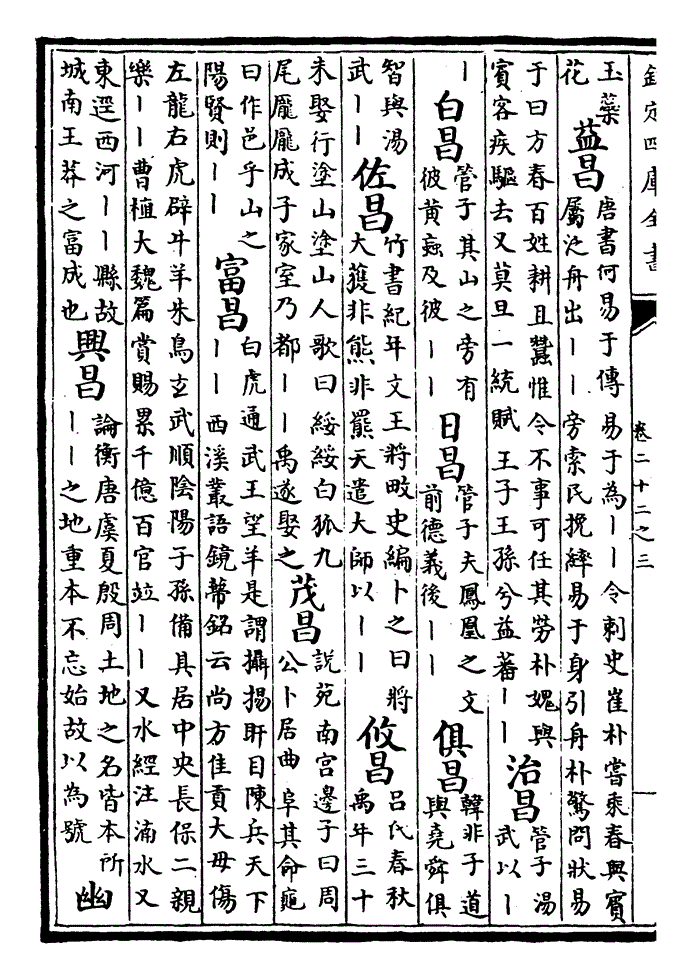 欽定四庫全書 卷二十二之三
玉蘂花 益昌 唐書何易于傳易于為||令刺史崔朴嘗乘春與賓屬泛舟出||旁索民挽繂易于身引舟朴驚問狀易
于曰方春百姓耕且蠶惟令不事可任其勞朴媿與賓客疾驅去又莫旦一統賦王子王孫兮益蕃|| 治昌 管子湯武以|
| 白昌 管子其山之旁有彼黄䖟及彼|| 日昌 管子夫鳳凰之文前德義後|| 俱昌 韓非子道與堯舜俱
智與湯武|| 佐昌 竹書紀年文王將畋史編卜之曰將大獲非熊非羆天遣大師以|| 攸昌 吕氏春秋禹年三十
未娶行塗山塗山人歌曰綏綏白狐九尾龎龎成子家室乃都||禹遂娶之 茂昌 説苑南宫邊子曰周公卜居曲阜其命龜
曰作邑乎山之陽賢則|| 富昌 白虎通武王望羊是謂攝揚盱目陳兵天下||西溪叢語鏡幕銘云尚方佳貢大毋傷
左龍右虎辟牛羊朱鳥玄武順隂陽子孫備具居中央長保二親樂||曹植大魏篇賞賜累千億百官竝||又水經注湳水又
東逕西河||縣故城南王莽之富成也 興昌 論衡唐虞夏殷周土地之名皆本所||之地重本不忘始故以為號 幽